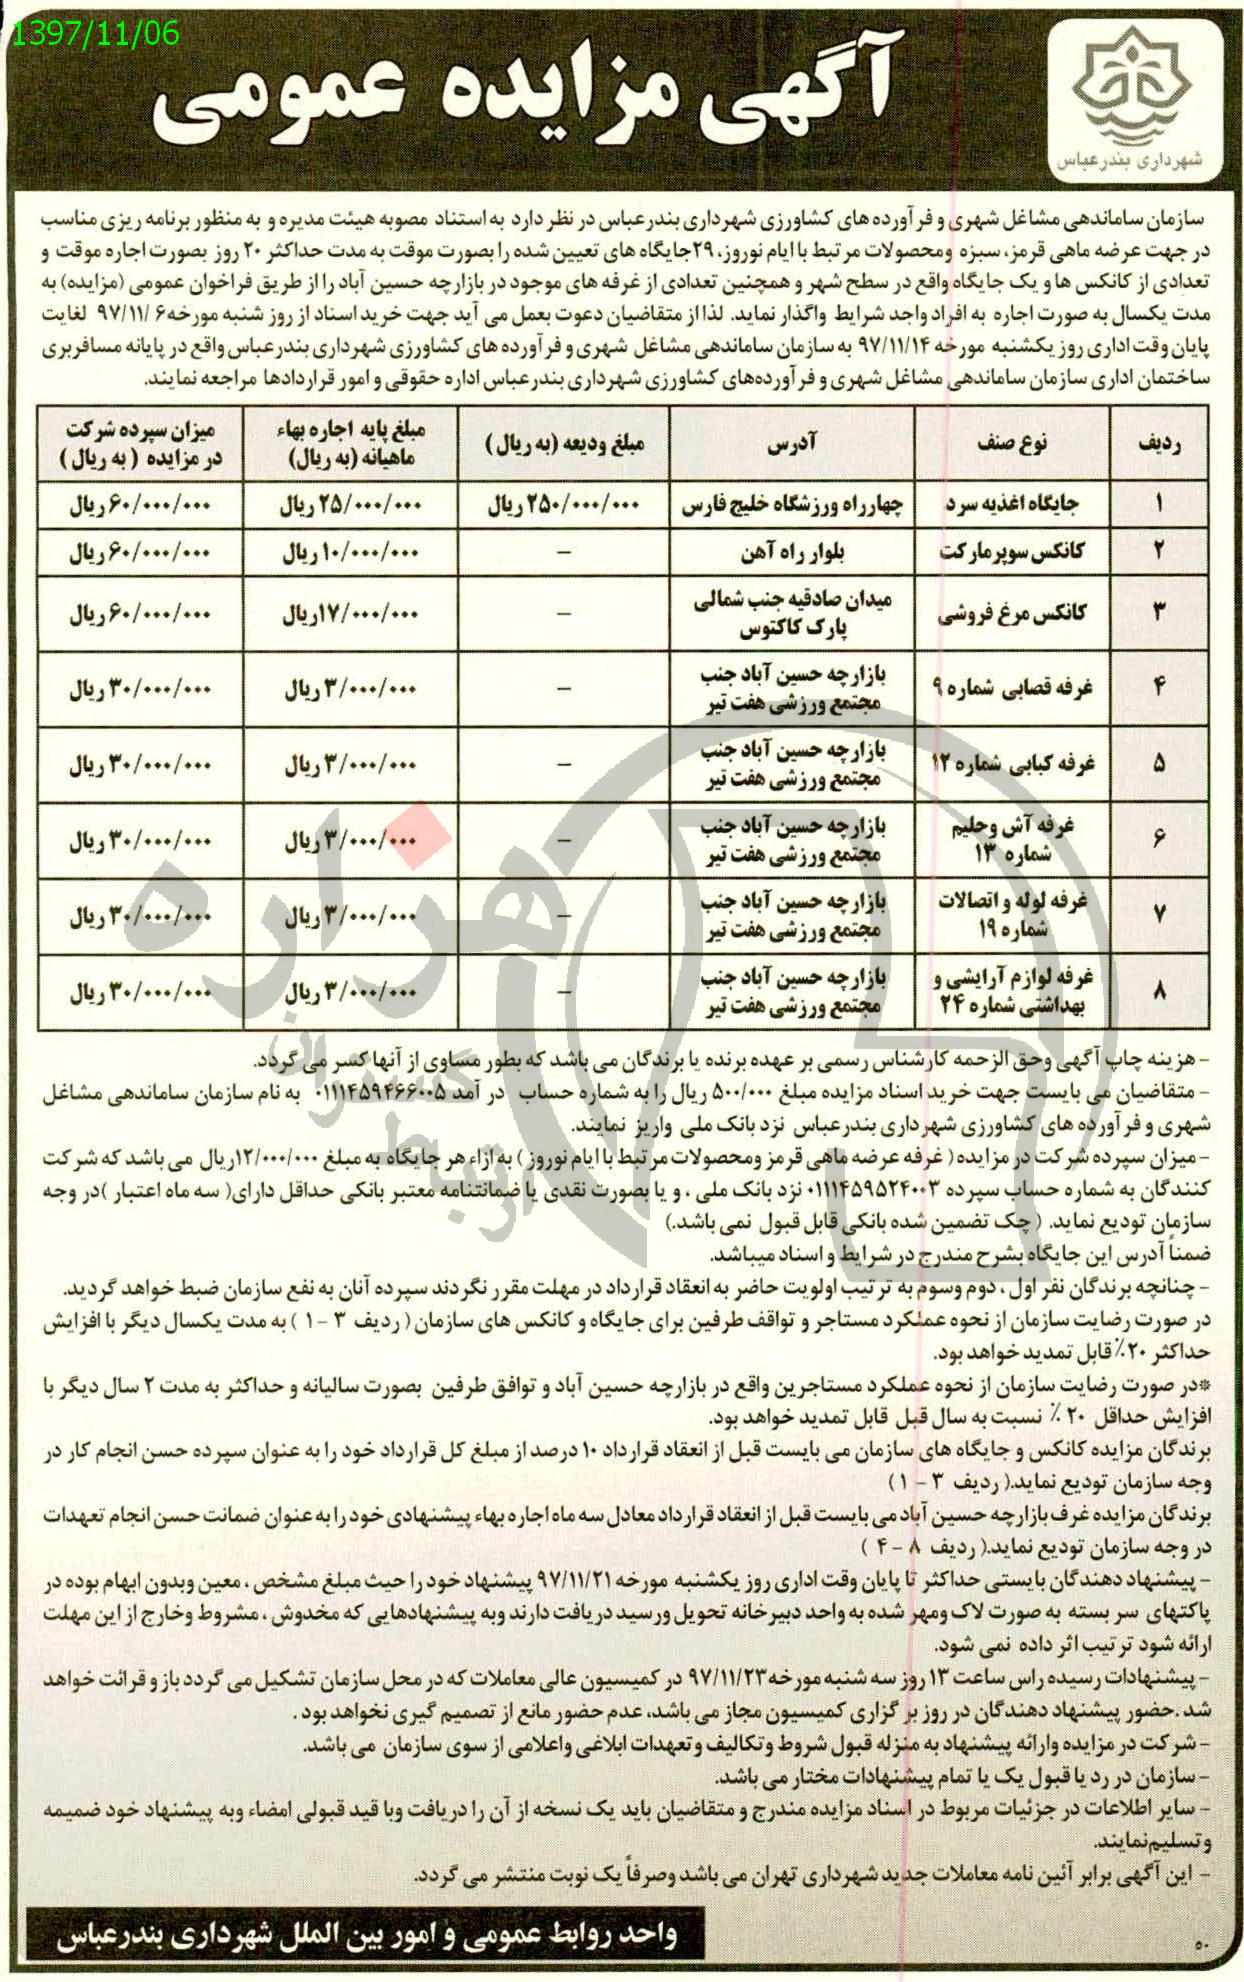 1397/11/06
آگهی مزایده عمومی
شهرداری بندرعباس
سازمان ساماندهی مشاغل شهری و فرآورده های کشاورزی شهرداری بندرعباس در نظر دارد به استناد مصوبه هیئت مدیره و به منظور برنامه ریزی مناسب
در جهت عرضه ماهی قرمز، سبزه ومحصولات مرتبط با ایام نوروز، ۲۹جایگاه های تعیین شده را بصورت موقت به مدت حداکثر ۲۰ روز بصورت اجاره موقت و
تعدادی از کانکس ها و یک جایگاه واقع در سطح شهر و همچنین تعدادی از غرفه های موجود در بازارچه حسین آباد را از طریق فراخوان عمومی (مزایده) به
مدت یکسال به صورت اجاره به افراد واجد شرایط واگذار نماید. لذا از متقاضیان دعوت بعمل می آید جهت خرید اسناد از روز شنبه مورخه۶ /۹۷/۱۱ لغایت
پایان وقت اداری روز یکشنبه مورخه ۹۷/۱۱/۱۴ به سازمان ساماندهی مشاغل شهری و فرآورده های کشاورزی شهرداری بندرعباس واقع در پایانه مسافربری
ساختمان اداری سازمان ساماندهی مشاغل شهری و فرآورده‌های کشاورزی شهرداری بندرعباس اداره حقوقی و امور قراردادها مراجعه نمایند.
ردیف نوع صنف آدرس مبلغ ودیعه (به ریال) مبلغ پایه اجاره بهاء ماهیانه (به ریال) میزان سپرده شرکت در مزایده ( به ریال )
۱ جایگاه اغذیه سرد چهارراه ورزشگاه خلیج فارس ۲۵۰/۰۰۰/۰۰۰ ریال ۲۵/۰۰۰/۰۰۰ ریال ۶۰/۰۰۰/۰۰۰ ریال
۲ کانکس سوپرمارکت بلوار راه آهن – ۱۰/۰۰۰/۰۰۰ ریال ۶۰/۰۰۰/۰۰۰ ریال
۳ کانکس مرغ فروشی میدان صادقیه جنب شمالی پارک کاکتوس – ۱۷/۰۰۰/۰۰۰ ریال ۶۰/۰۰۰/۰۰۰ ریال
۴ غرفه قصابی شماره ۹ بازارچه حسین آباد جنب مجتمع ورزشی هفت تیر – ۳/۰۰۰/۰۰۰ ریال ۳۰/۰۰۰/۰۰۰ ریال
۵ غرفه کبابی شماره ۱۲ بازارچه حسین آباد جنب مجتمع ورزشی هفت تیر – ۳/۰۰۰/۰۰۰ ریال ۳۰/۰۰۰/۰۰۰ ریال
۶ غرفه آش وحلیم شماره ۱۳ بازارچه حسین آباد جنب مجتمع ورزشی هفت تیر – ۳/۰۰۰/۰۰۰ ریال ۳۰/۰۰۰/۰۰۰ ریال
۷ غرفه لوله و اتصالات شماره ۱۹ بازارچه حسین آباد جنب مجتمع ورزشی هفت تیر – ۳/۰۰۰/۰۰۰ ریال ۳۰/۰۰۰/۰۰۰ ریال
۸ غرفه لوازم آرایشی و بهداشتی شماره ۲۴ بازارچه حسین آباد جنب مجتمع ورزشی هفت تیر – ۳/۰۰۰/۰۰۰ ریال ۳۰/۰۰۰/۰۰۰ ریال
- هزینه چاپ آگهی وحق الزحمه کارشناس رسمی بر عهده برنده یا برندگان می باشد که بطور مساوی از آنها کسر می گردد.
- متقاضیان می بایست جهت خرید اسناد مزایده مبلغ ۵۰۰/۰۰۰ ریال را به شماره حساب در آمد ۰۱۱۱۴۵۹۴۶۶۰۰۵ به نام سازمان ساماندهی مشاغل
شهری و فرآورده های کشاورزی شهرداری بندرعباس نزد بانک ملی واریز نمایند.
- میزان سپرده شرکت در مزایده ( غرفه عرضه ماهی قرمز ومحصولات مرتبط با ایام نوروز ) به ازاء هر جایگاه به مبلغ ۱۲/۰۰۰/۰۰۰ریال می باشد که شرکت
کنندگان به شماره حساب سپرده ۰۱۱۱۴۵۹۵۲۴۰۰۳ نزد بانک ملی ، و یا بصورت نقدی یا ضمانتنامه معتبر بانکی حداقل دارای( سه ماه اعتبار )در وجه
سازمان تودیع نماید. ( چک تضمین شده بانکی قابل قبول نمی باشد.)
ضمناً آدرس این جایگاه بشرح مندرج در شرایط و اسناد میباشد.
- چنانچه برندگان نفر اول ، دوم وسوم به ترتیب اولویت حاضر به انعقاد قرارداد در مهلت مقرر نگردند سپرده آنان به نفع سازمان ضبط خواهد گردید.
در صورت رضایت سازمان از نحوه عملکرد مستاجر و تواقف طرفین برای جایگاه و کانکس های سازمان ( ردیف ۳ - ۱ ) به مدت یکسال دیگر با افزایش
حداکثر ۲۰٪ قابل تمدید خواهد بود.
*در صورت رضایت سازمان از نحوه عملکرد مستاجرین واقع در بازارچه حسین آباد و توافق طرفین بصورت سالیانه و حداکثر به مدت ۲ سال دیگر با
افزایش حداقل ۲۰ ٪ نسبت به سال قبل قابل تمدید خواهد بود.
برندگان مزایده کانکس و جایگاه های سازمان می بایست قبل از انعقاد قرارداد ۱۰ درصد از مبلغ کل قرارداد خود را به عنوان سپرده حسن انجام کار در
وجه سازمان تودیع نماید.( ردیف ۳ - ۱ )
برندگان مزایده غرف بازارچه حسین آباد می بایست قبل از انعقاد قرارداد معادل سه ماه اجاره بهاء پیشنهادی خود را به عنوان ضمانت حسن انجام تعهدات
در وجه سازمان تودیع نماید.( ردیف ۸ - ۴ )
- پیشنهاد دهندگان بایستی حداکثر تا پایان وقت اداری روز یکشنبه مورخه ۹۷/۱۱/۲۱ پیشنهاد خود را حیث مبلغ مشخص ، معین وبدون ابهام بوده در
پاکتهای سر بسته به صورت لاک ومهر شده به واحد دبیرخانه تحویل ورسید دریافت دارند وبه پیشنهادهایی که مخدوش ، مشروط وخارج از این مهلت
ارائه شود ترتیب اثر داده نمی شود.
- پیشنهادات رسیده راس ساعت ۱۳ روز سه شنبه مورخه ۹۷/۱۱/۲۳ در کمیسیون عالی معاملات که در محل سازمان تشکیل می گردد باز و قرائت خواهد
شد .حضور پیشنهاد دهندگان در روز بر گزاری کمیسیون مجاز می باشد، عدم حضور مانع از تصمیم گیری نخواهد بود .
- شرکت در مزایده وارائه پیشنهاد به منزله قبول شروط وتکالیف وتعهدات ابلاغی واعلامی از سوی سازمان می باشد.
- سازمان در رد یا قبول یک یا تمام پیشنهادات مختار می باشد.
- سایر اطلاعات در جزئیات مربوط در اسناد مزایده مندرج و متقاضیان باید یک نسخه از آن را دریافت وبا قید قبولی امضاء وبه پیشنهاد خود ضمیمه
وتسلیم‌نمایند.
- این آگهی برابر آئین نامه معاملات جدید شهرداری تهران می باشد وصرفاً یک نوبت منتشر می گردد.
واحد روابط عمومی و امور بین الملل شهرداری بندرعباس
۵۰
هزاره